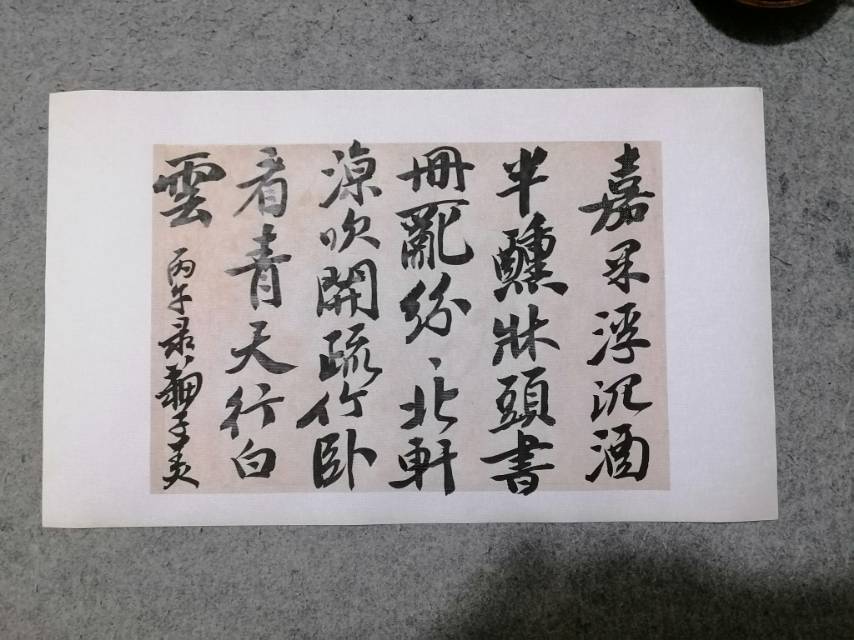 嘉果浮沉酒
半醺牀頭書
冊亂紛〻北軒
涼吹開疏竹臥
看青天行白
雲 丙午录蘇子美